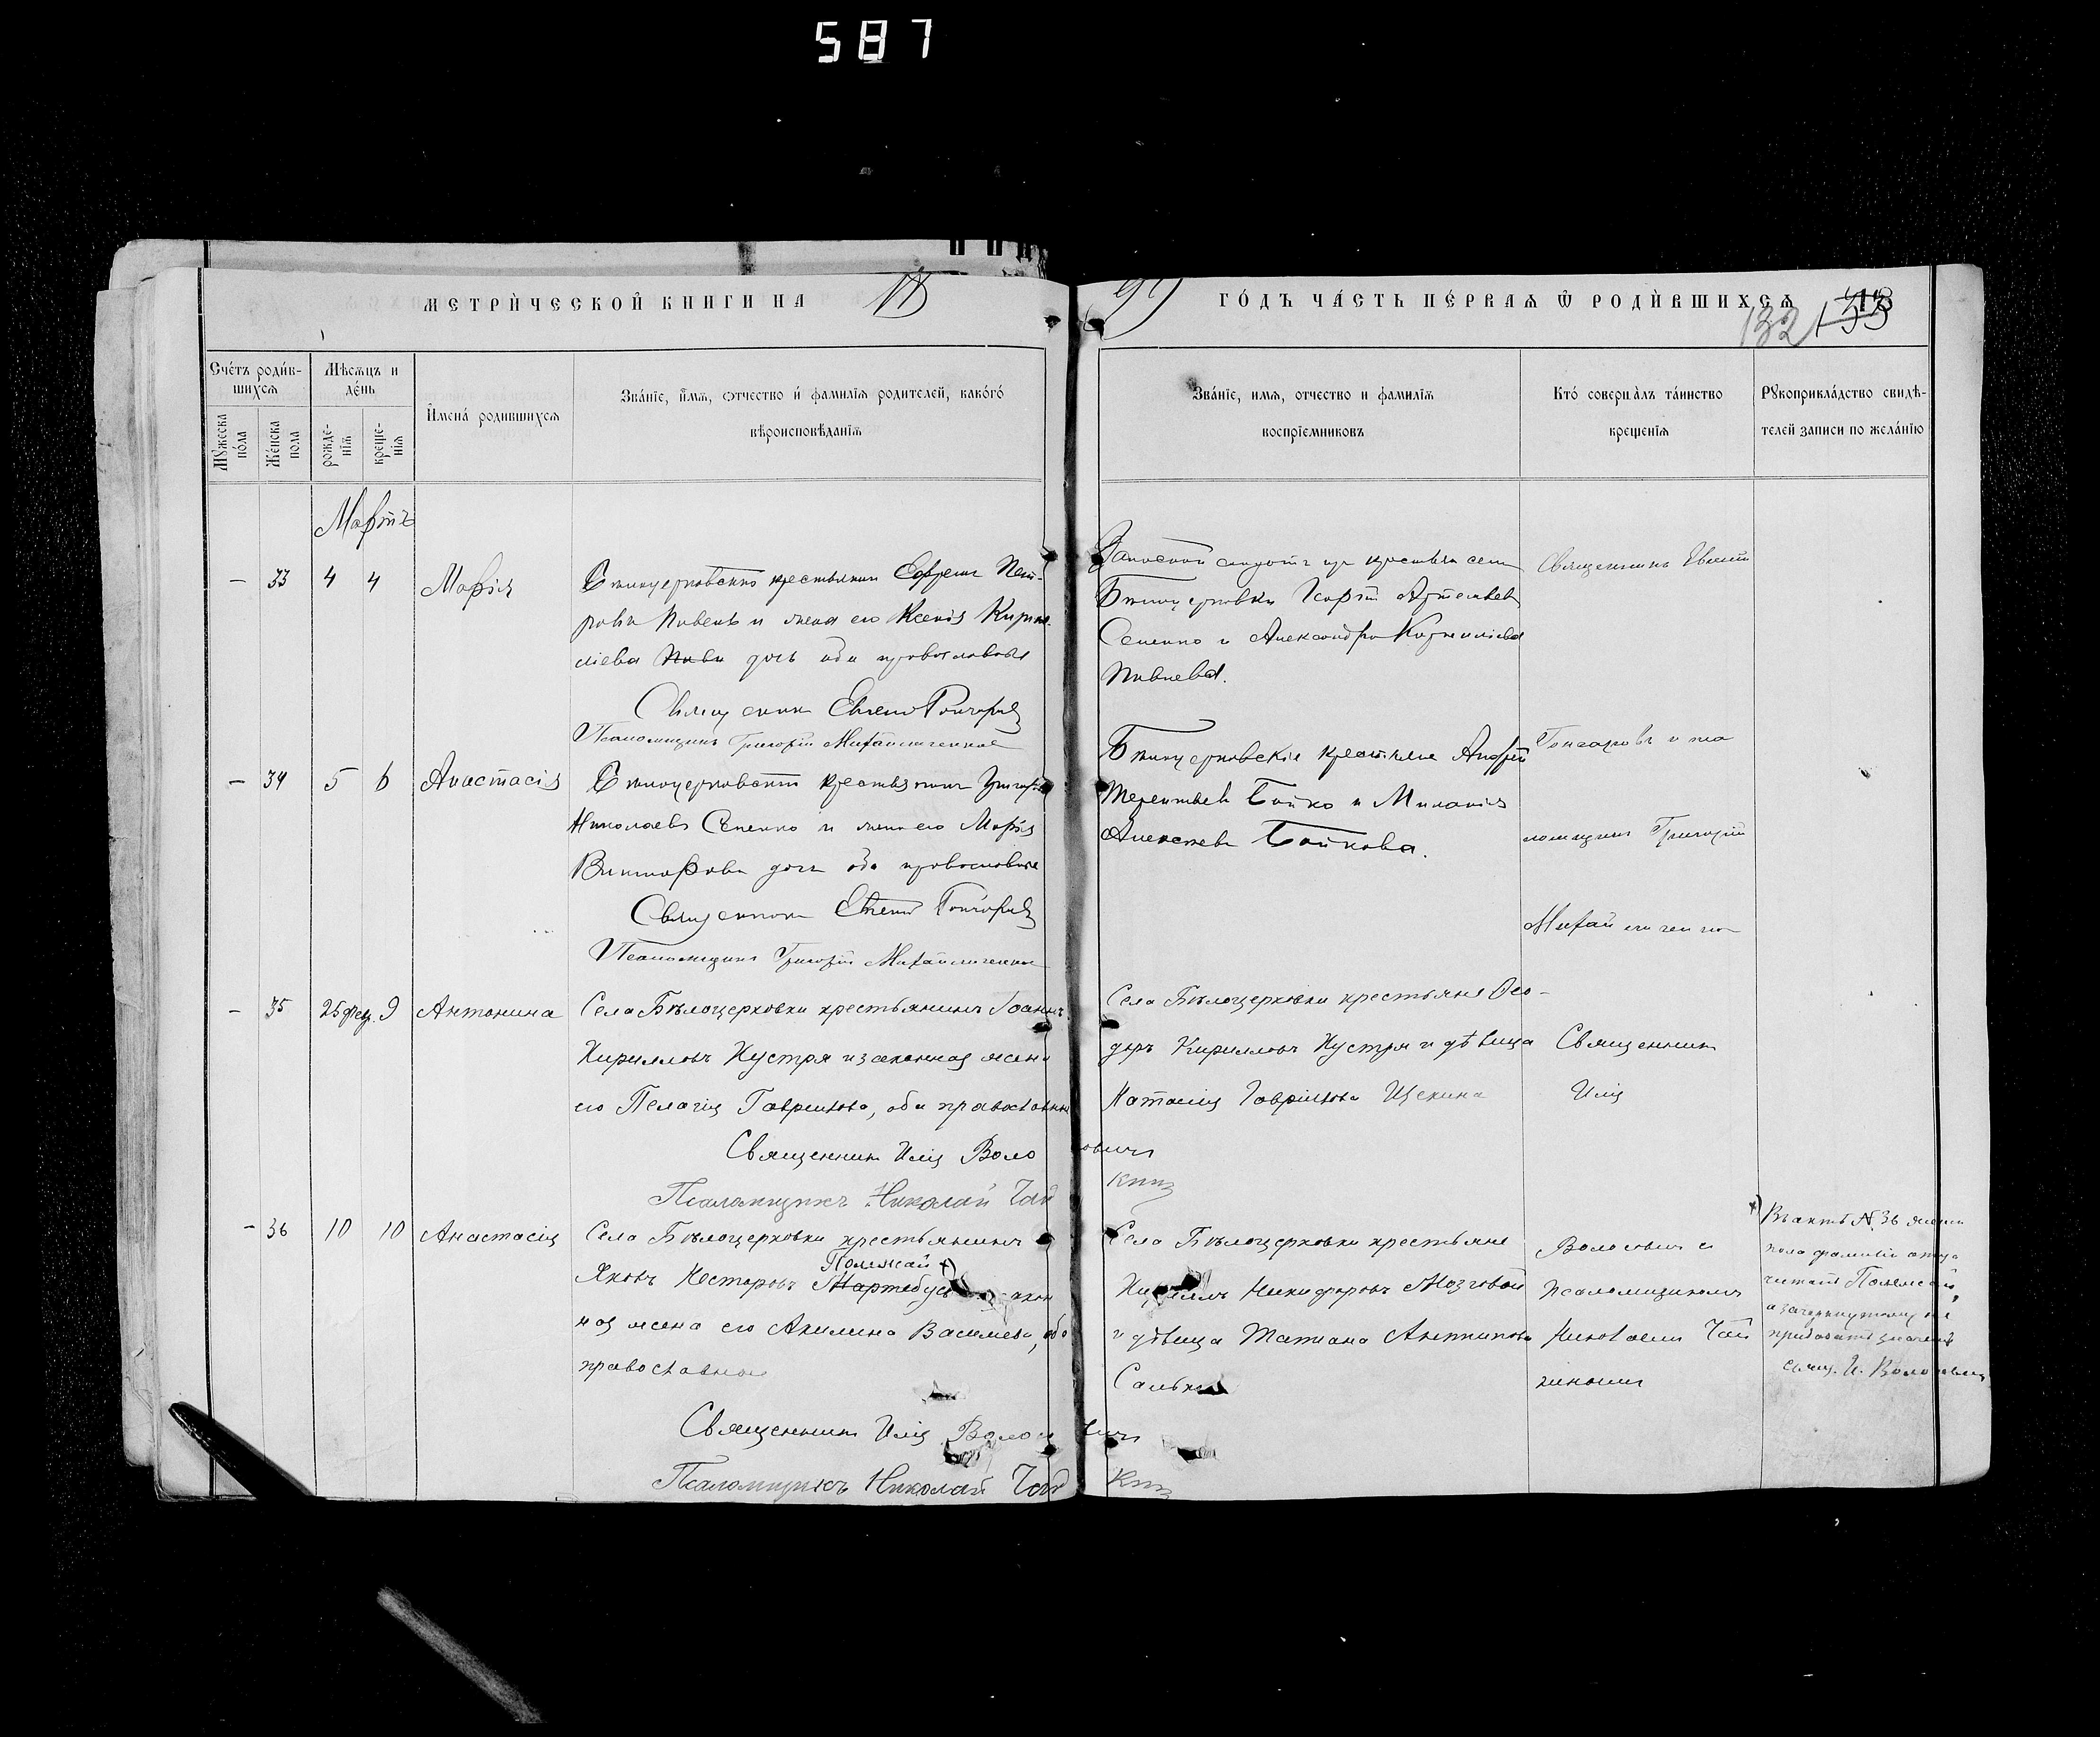 587
МЕТРИ́ЧЕСКОЙ КНИГИ НА
ГО́ДЪ ЧА́СТЬ ПЕ́РВАЯ Ѿ РОДИ́ВШИХСЯ
132
Сче́тъ роди́в-
шихся
Мѣсяцъ и
де́нь
Имена́ родившихся
Зва́нїе, и́мя, отчество и́ фамилїя родителей, како́го
вѣроисповѣданїя
Мꙋжеска
по́ла
Же́нска
пола
рожде-
нїя
креще-
нїя
Зва́нїе, имя, отчество и фамилїя
воспрїемниковъ
Кто́ соверша̀лъ та́инство
крещенїя
Рꙋкоприкла́дство свидѣ-
телей записи по жела́нїю
Мартъ
- 33 4 4 Марія
Бѣлоцерковскій крестьянинъ Ефремъ Пет-
ровъ Пивень и жена его Ксенія Кирил-
ліева дочь оба православные
Священникъ Евгеній Гончаровъ
Псаломщикъ Григорій Михайличенко
Запасной солдатъ изъ крестьянъ села
Бѣлоцерковки Георгій Артемьевъ
Сененко и Александра Корниліева
Пивнева.
Священникъ Евгеній
- 34 5 6 Анастасія
Бѣлоцерковскій крестьянинъ Григорій
Николаевъ Сененко и жена его Марія
Викторова дочь оба православные
Священникъ Евгеній Гончаровъ
Псаломщикъ Григорій Михайличенко
Бѣлоцерковскіе крестьяне Андрей
Терентьевъ Бойко и Миланія
Алексѣева Бойкова.
Гончаровъ и пса
ломщикъ Григорій
Михайличенко
- 35 25 фев. 9 Антонина
Села Бѣлоцерковки крестьянинъ Іоаннъ
Кирилловъ Кустря и законная жена
его Пелагія Гаврилова, оба православные
Священникъ Илія Волосовичъ
Псаломщикъ Николай
Села Бѣлоцерковки крестьяне Ѳео-
доръ Кирилловъ Кустря и дѣвица
Наталія Гаврилова Щекина
Священникъ
Илія
- 36 10 10 Анастасія
Села Бѣлоцерковки крестьянинъ
Полежай х)
Яковъ Несторовъ закон
ная жена его Акилина Васильева, оба
православные
Священникъ Илія Волосовичъ
Псаломщикъ Николай
Села Бѣлоцерковки крестьяне
Кириллъ Никифоровъ Мозговой
и дѣвица Татіана Антипова
Волосовичъ и
псаломщикомъ
Николаемъ
х) Въ актѣ № 36 женск.
пола фамилію отца
читать Полежай,
а зачеркнутому не
придавать значенія
свящ. И. Волосовичъ